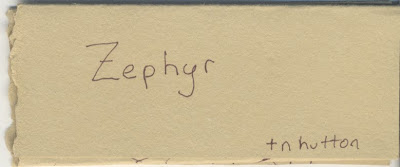 Zephyr
tn hutton